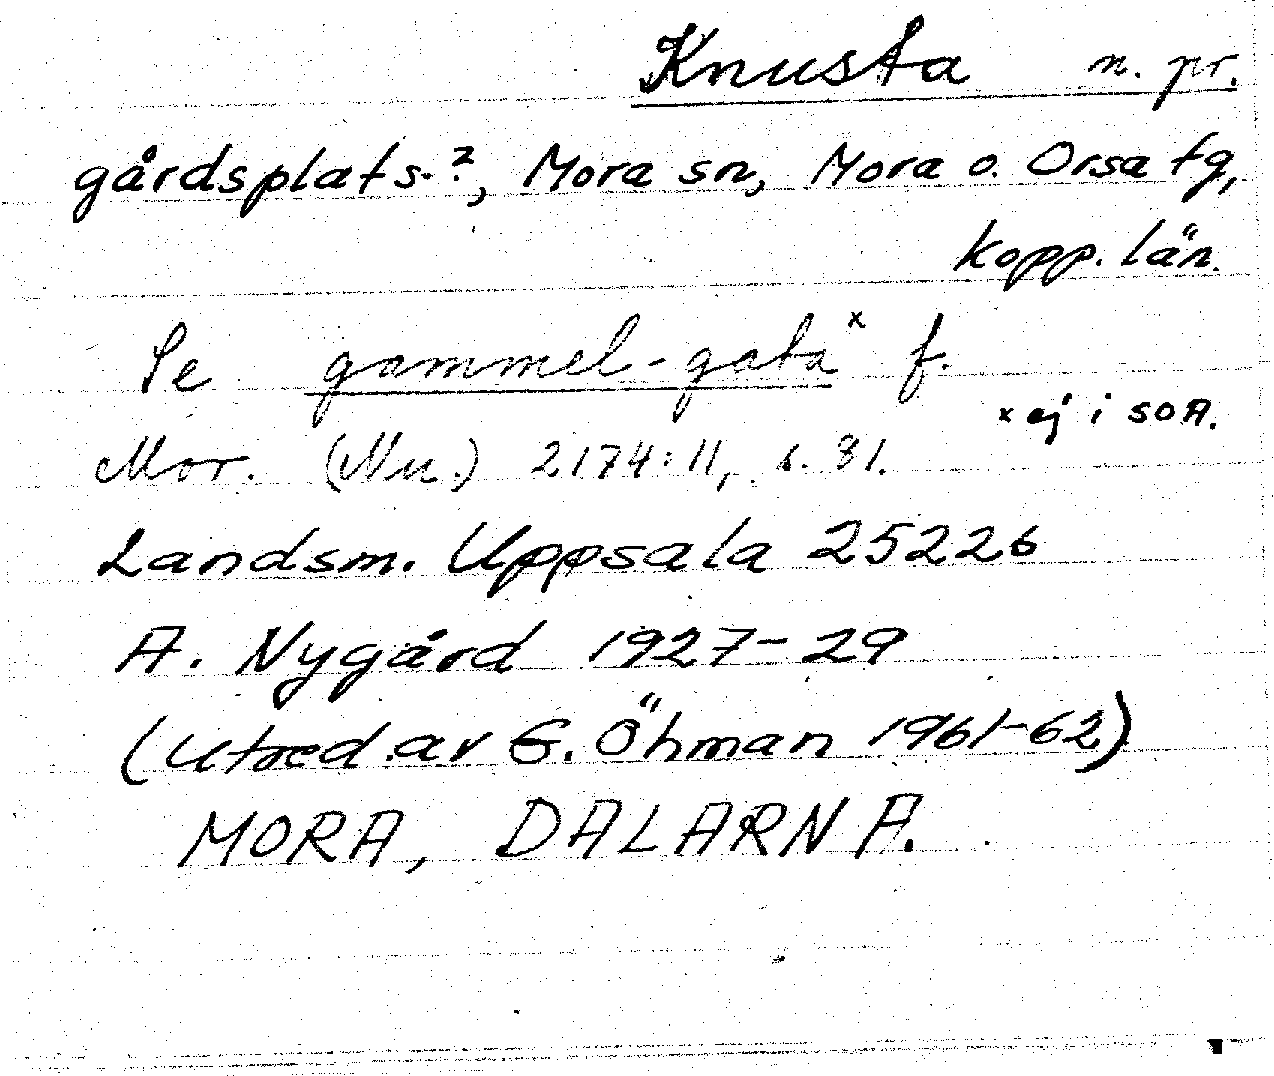 Knusta n. pr.
gårdsplats.?, Mora sn, Mora o. Orsa tg,
Kopp. län.
Se gammel-gata x f.
x ej i SOA.
Mor. (Nu.) 2174:11, s. 81.
Landsm. Uppsala 25226
A. Nygård 1927-29
(Utred av G. Öhman 1961-62)
MORA, DALARNA.